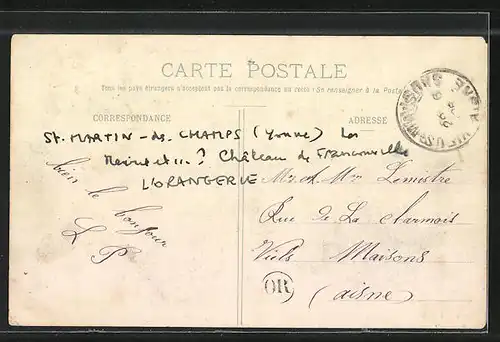 CARTE POSTALE
Tous les pays étrangers n'acceptent pas la correspondance au recto (Se renseigner à la Poste)
CORRESPONDANCE
ADRESSE
ST. MARTIN - des CHAMPS (Yonne) Les
? Château de Franconville
L'ORANGERIE
bien le bonjour
L P
Mr et Mme Lemistre
Rue de La Charmois
Viels Maisons
(aisne)
OR